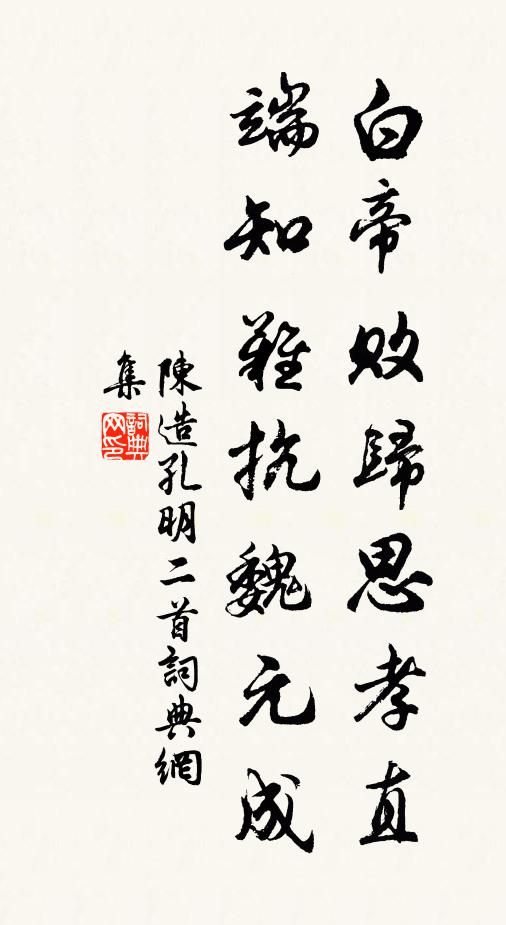 白帝敗歸思孝直
端知難抗魏元成
陳造孔明二首詞典網
集
詞典
网印